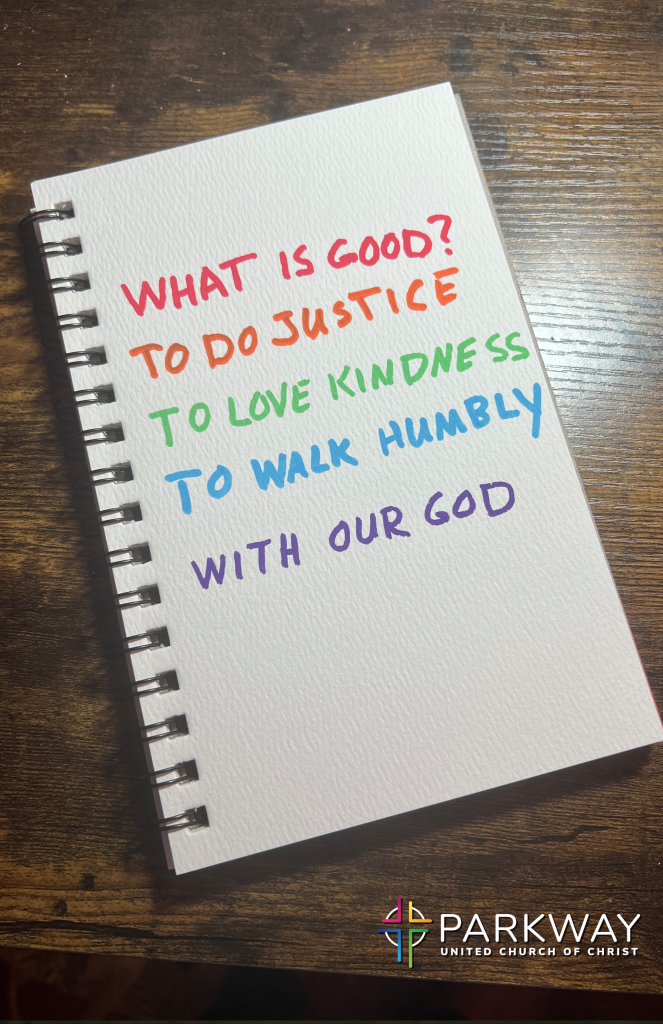 WHAT IS GOOD?
TO DO JUSTICE
TO LOVE KINDNESS
TO WALK HUMBLY
WITH OUR GOD
PARKWAY
UNITED CHURCH OF CHRIST